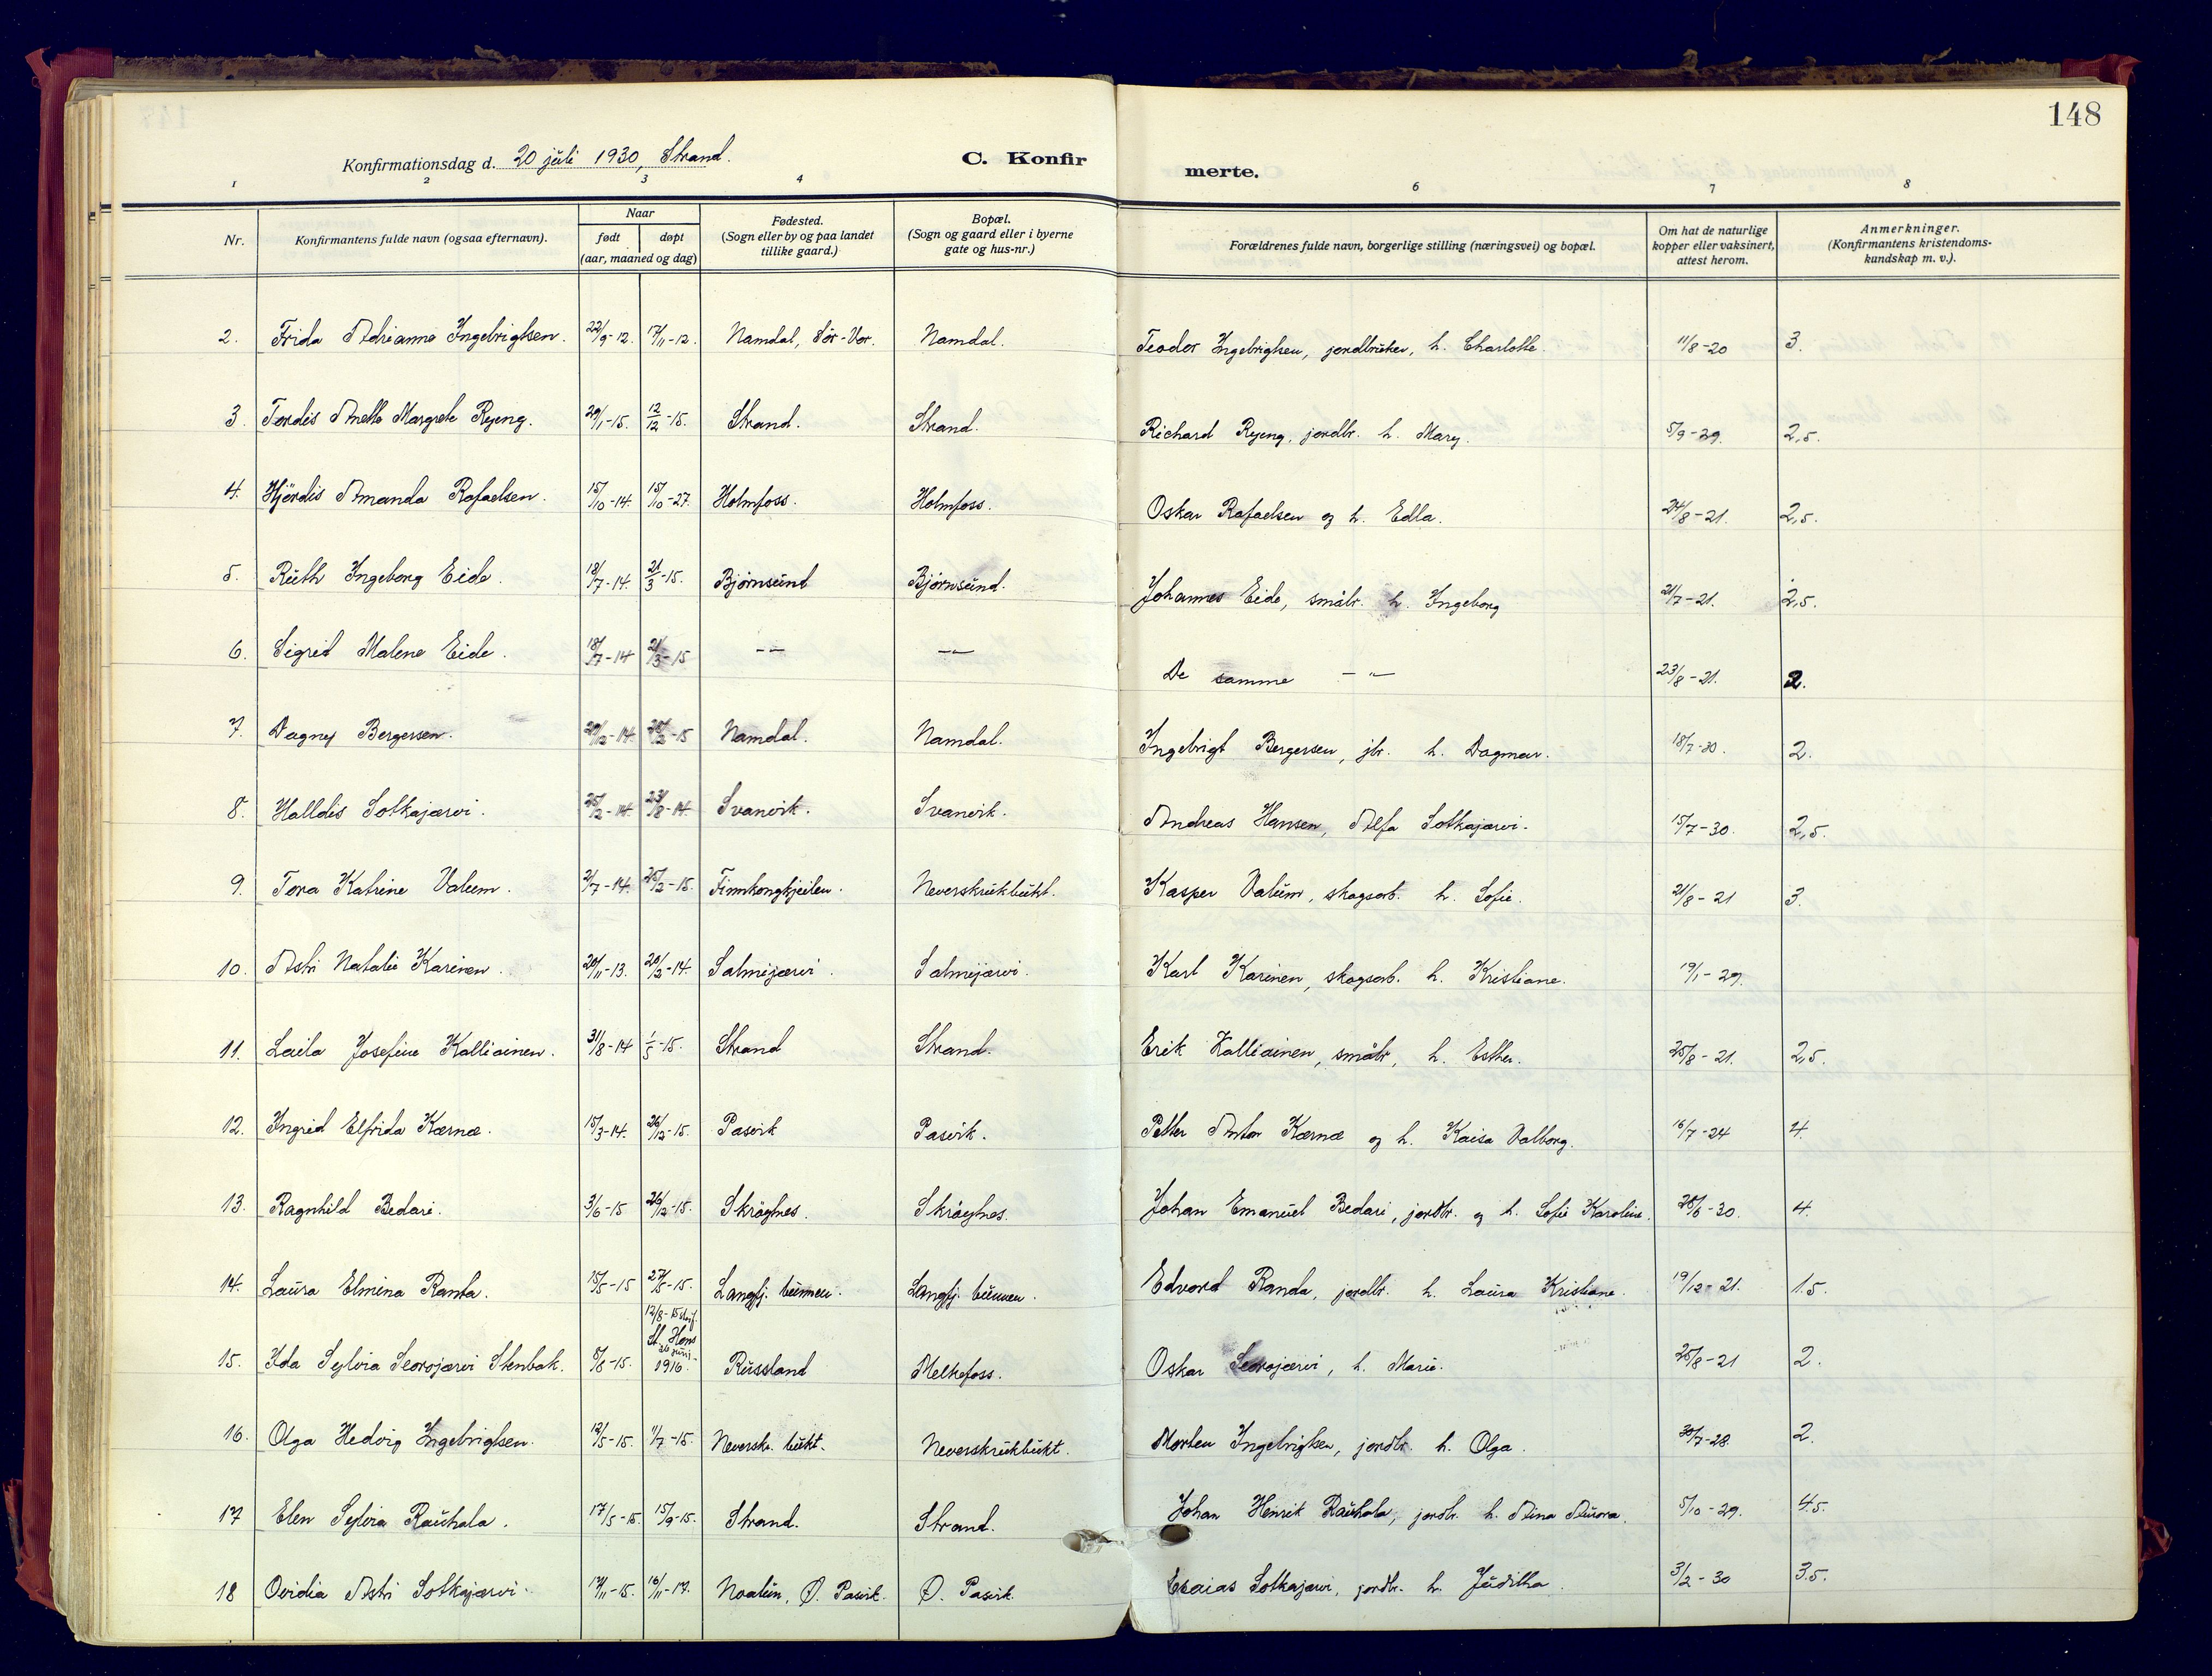 148
Konfirmationsdag d. 20 juli 1930, Strand.
C. Konfirmerte.
1 2 3 4 6 7 8
Nr. Konfirmantens fulde navn (ogsaa efternavn). Naar født døpt (aar, maaned og dag) Fødested. (Sogn eller by og paa landet tillike gaard.) Bopæl. (Sogn og gaard eller i byerne gate og hus-nr.) Forældrenes fulde navn, borgerlige stilling (næringsvei) og bopæl. Om hat de naturlige kopper eller vaksinert, attest herom. Anmerkninger. (Konfirmantens kristendoms-kundskap m. v.).
2. Frida Adrianna Ingebrigtsen. 22/9-12. 17/11-12. Namdal, Sør-Var. Namdal. Teodor Ingebrigtsen, jordbruker, h. Charlotte. 11/8-20 3.
3. Tordis Anette Margrete Ryeng. 29/1-15. 12/12-15. Strand. Strand. Richard Ryeng, jordbr. h. Mary. 5/9-29. 2,5.
4. Hjördis Amanda Rafaelsen. 15/10-14. 15/10-27. Holmfoss. Holmfoss. Oskar Rafaelsen og h. Edla. 24/8-21. 2,5.
5. Ruth Ingeborg Eide. 18/7-14. 21/3-15. Bjørnsund Bjørnsund. Johannes Eide, småbr. h. Ingeborg 21/7-21. 2,5.
6. Sigrid Malene Eide. 18/7-14 21/3-15 -"- -"- De samme -"- 23/8-21. 2.
7. Dagny Bergersen. 29/12-14. 28/2-15 Namdal. Namdal. Ingebrigt Bergersen, jbr. h. Dagmar. 18/7-30. 2.
8. Halldis Sotkajærvi. 25/2-14. 23/8-14. Svanvik. Svanvik. Andreas Hansen, Alfa Sotkajærvi. 15/7-30. 2,5.
9. Tora Katrine Valum. 2/7-14. 25/2-15. Finnkongkjeilen. Neverskrukbukt. Kasper Valum, skogsarb. h. Sofie. 21/8-21 3.
10. Astri Natalie Karinen. 20/11-13. 20/2-14. Salmijærvi. Salmijærvi. Karl Karinen, skogsarb. h. Kristiane. 19/1-29.
11. Laila Josefine Kalliainen. 31/8-14 1/5-15. Strand Strand. Erik Kalliainen, småbr, h. Esther. 25/8-21. 2,5.
12. Ingrid Elfrida Kærnæ. 15/3-14. 26/12-15. Pasvik Pasvik. Petter Anton Kærnæ og h. Kaisa Valborg. 16/7-24 4.
13. Ragnhild Bedari. 3/6-15 26/12-15. Skrögnes. Skrögnes. Johan Emanuel Bedari, jordbr. og h. Sofie Karoline. 28/6-30. 4.
14. Laura Elmina Ranta. 15/5-15 27/5-15. Langfj. bunnen. Langfj. bunnen. Edvard Randa, jordbr. h. Laura Kristiane. 19/12-21. 1.5.
15. Ida Sylvia Seorojærvi Stenbak. 8/8-15. 12/8-15 St. Hans 1916. Russland Melkefoss. Oskar Seorojærvi, h. Marie. 25/8-21 2.
16. Olga Hedvig Ingebrigtsen. 12/5-15. 11/7-15. Neversk. bukt. Neverskrukbukt. Morten Ingebrigtsen, jordbr. h. Olga. 30/7-28. 2.
17 Elen Sylvia Rauhala. 17/5-15. 15/9-15. Strand. Strand. Johan Henrik Rauhala, jordbr. h. Aina Aurora. 5/10-29. 4.5.
18 Ovidia Astri Sotkajærvi. 17/11-15. 16/11-17. Noatun, Ø. Pasvik. Ø. Pasvik. Esaias Sotkajærvi, jordbr. h. Juditha. 3/2-30 3.5.